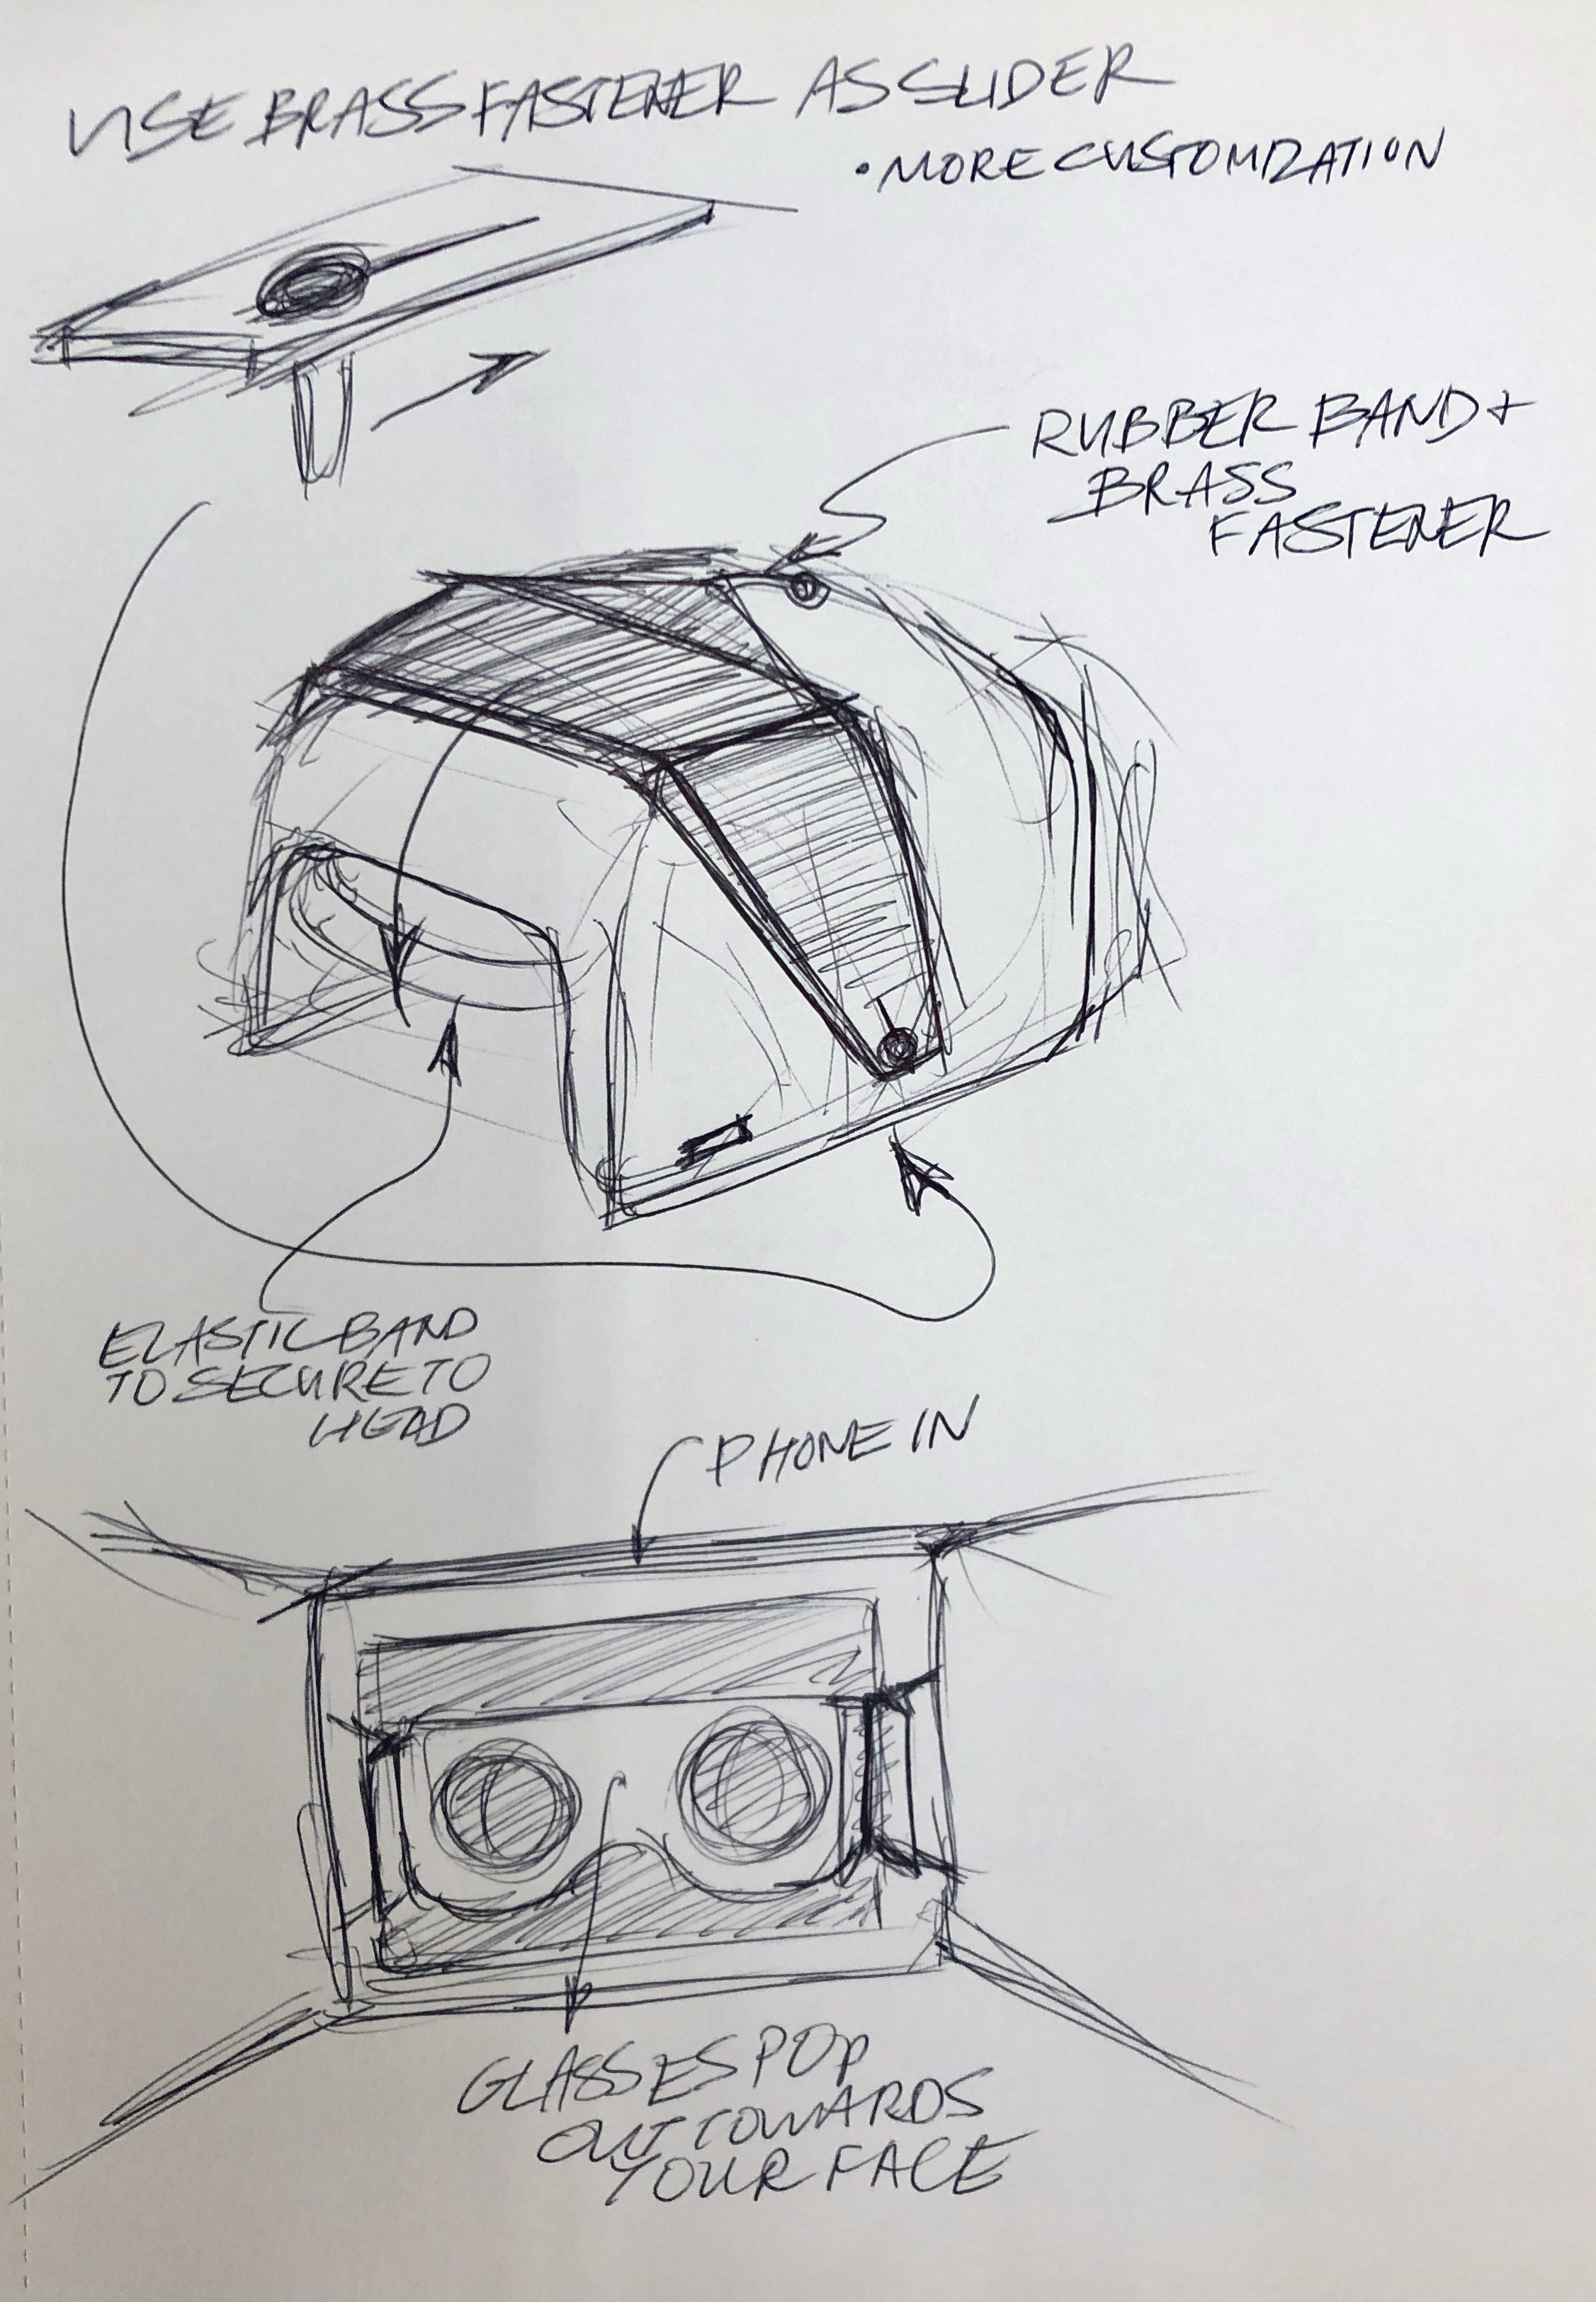 USE BRASS FASTENER AS SLIDER
• MORE CUSTOMIZATION
RUBBER BAND +
BRASS
FASTENER
ELASTIC BAND
TO SECURE TO
HEAD
PHONE IN
GLASSES POP
OUT TOWARDS
YOUR FACE